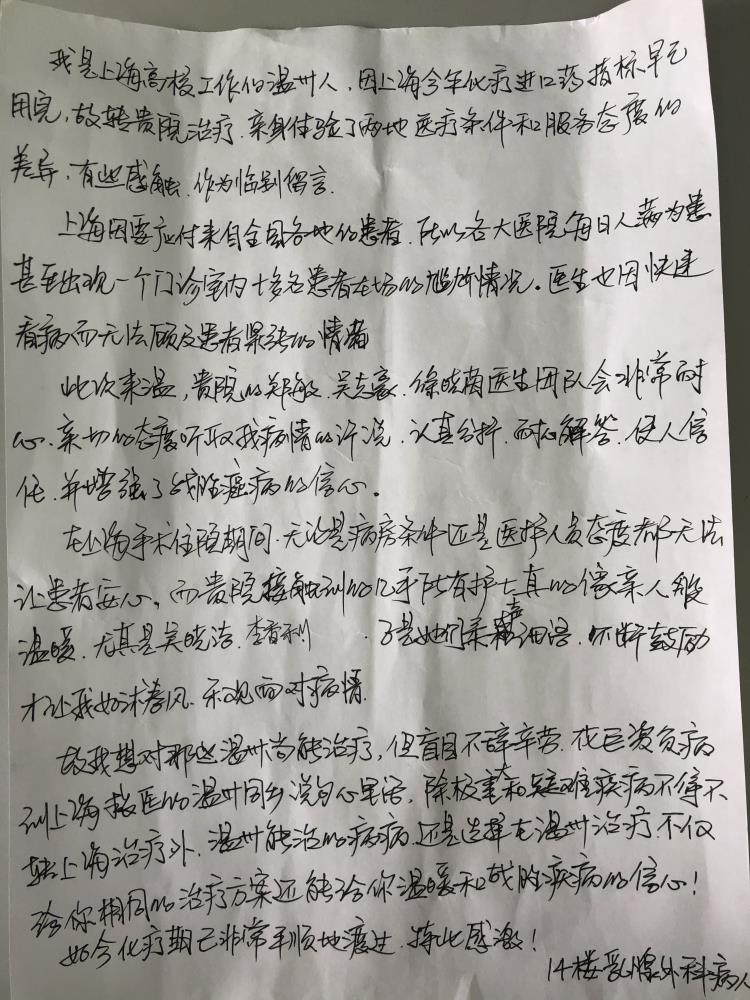 我是上海高校工作的温州人，因上海今年化疗进口药指标早已
用完，故转贵院治疗，亲身体验了两地医疗条件和服务态度的
差异，有些感触，作为临别留言.
上海因要应付来自全国各地的患者，所以各大医院每日人满为患
甚至出现一个门诊室内十多名患者在场的尴尬情况。医生也因快速
看病而无法顾及患者紧张的情绪
此次来温，贵院的郑敏、吴克豪、徐晓茵医生团队会非常耐
心、亲切的态度听取我病情的诉说，认真分析，耐心解答，使人信
任，并增强了战胜癌病的信心。
在上海手术住院期间，无论是病房条件还是医护人员态度都无法
让患者安心，而贵院接触到的几乎所有护士真的像亲人般
温暖，尤其是吴晓洁、李香利 于是她们柔声细语，不断鼓励
才让我如沐春风，乐观面对病情.
故我想对那些温州尚能治疗，但盲目不辞辛劳，花巨资负病
到上海救医的温州同乡说句心里话，除极重大和疑难疾病不得不
转上海治疗外，温州能治的病病，还是选择在温州治疗，不仅
给你相同的治疗方案还能给你温暖和战胜疾病的信心！
如今化疗期已非常平顺地渡过，特此感激！
14楼乳腺外科病人